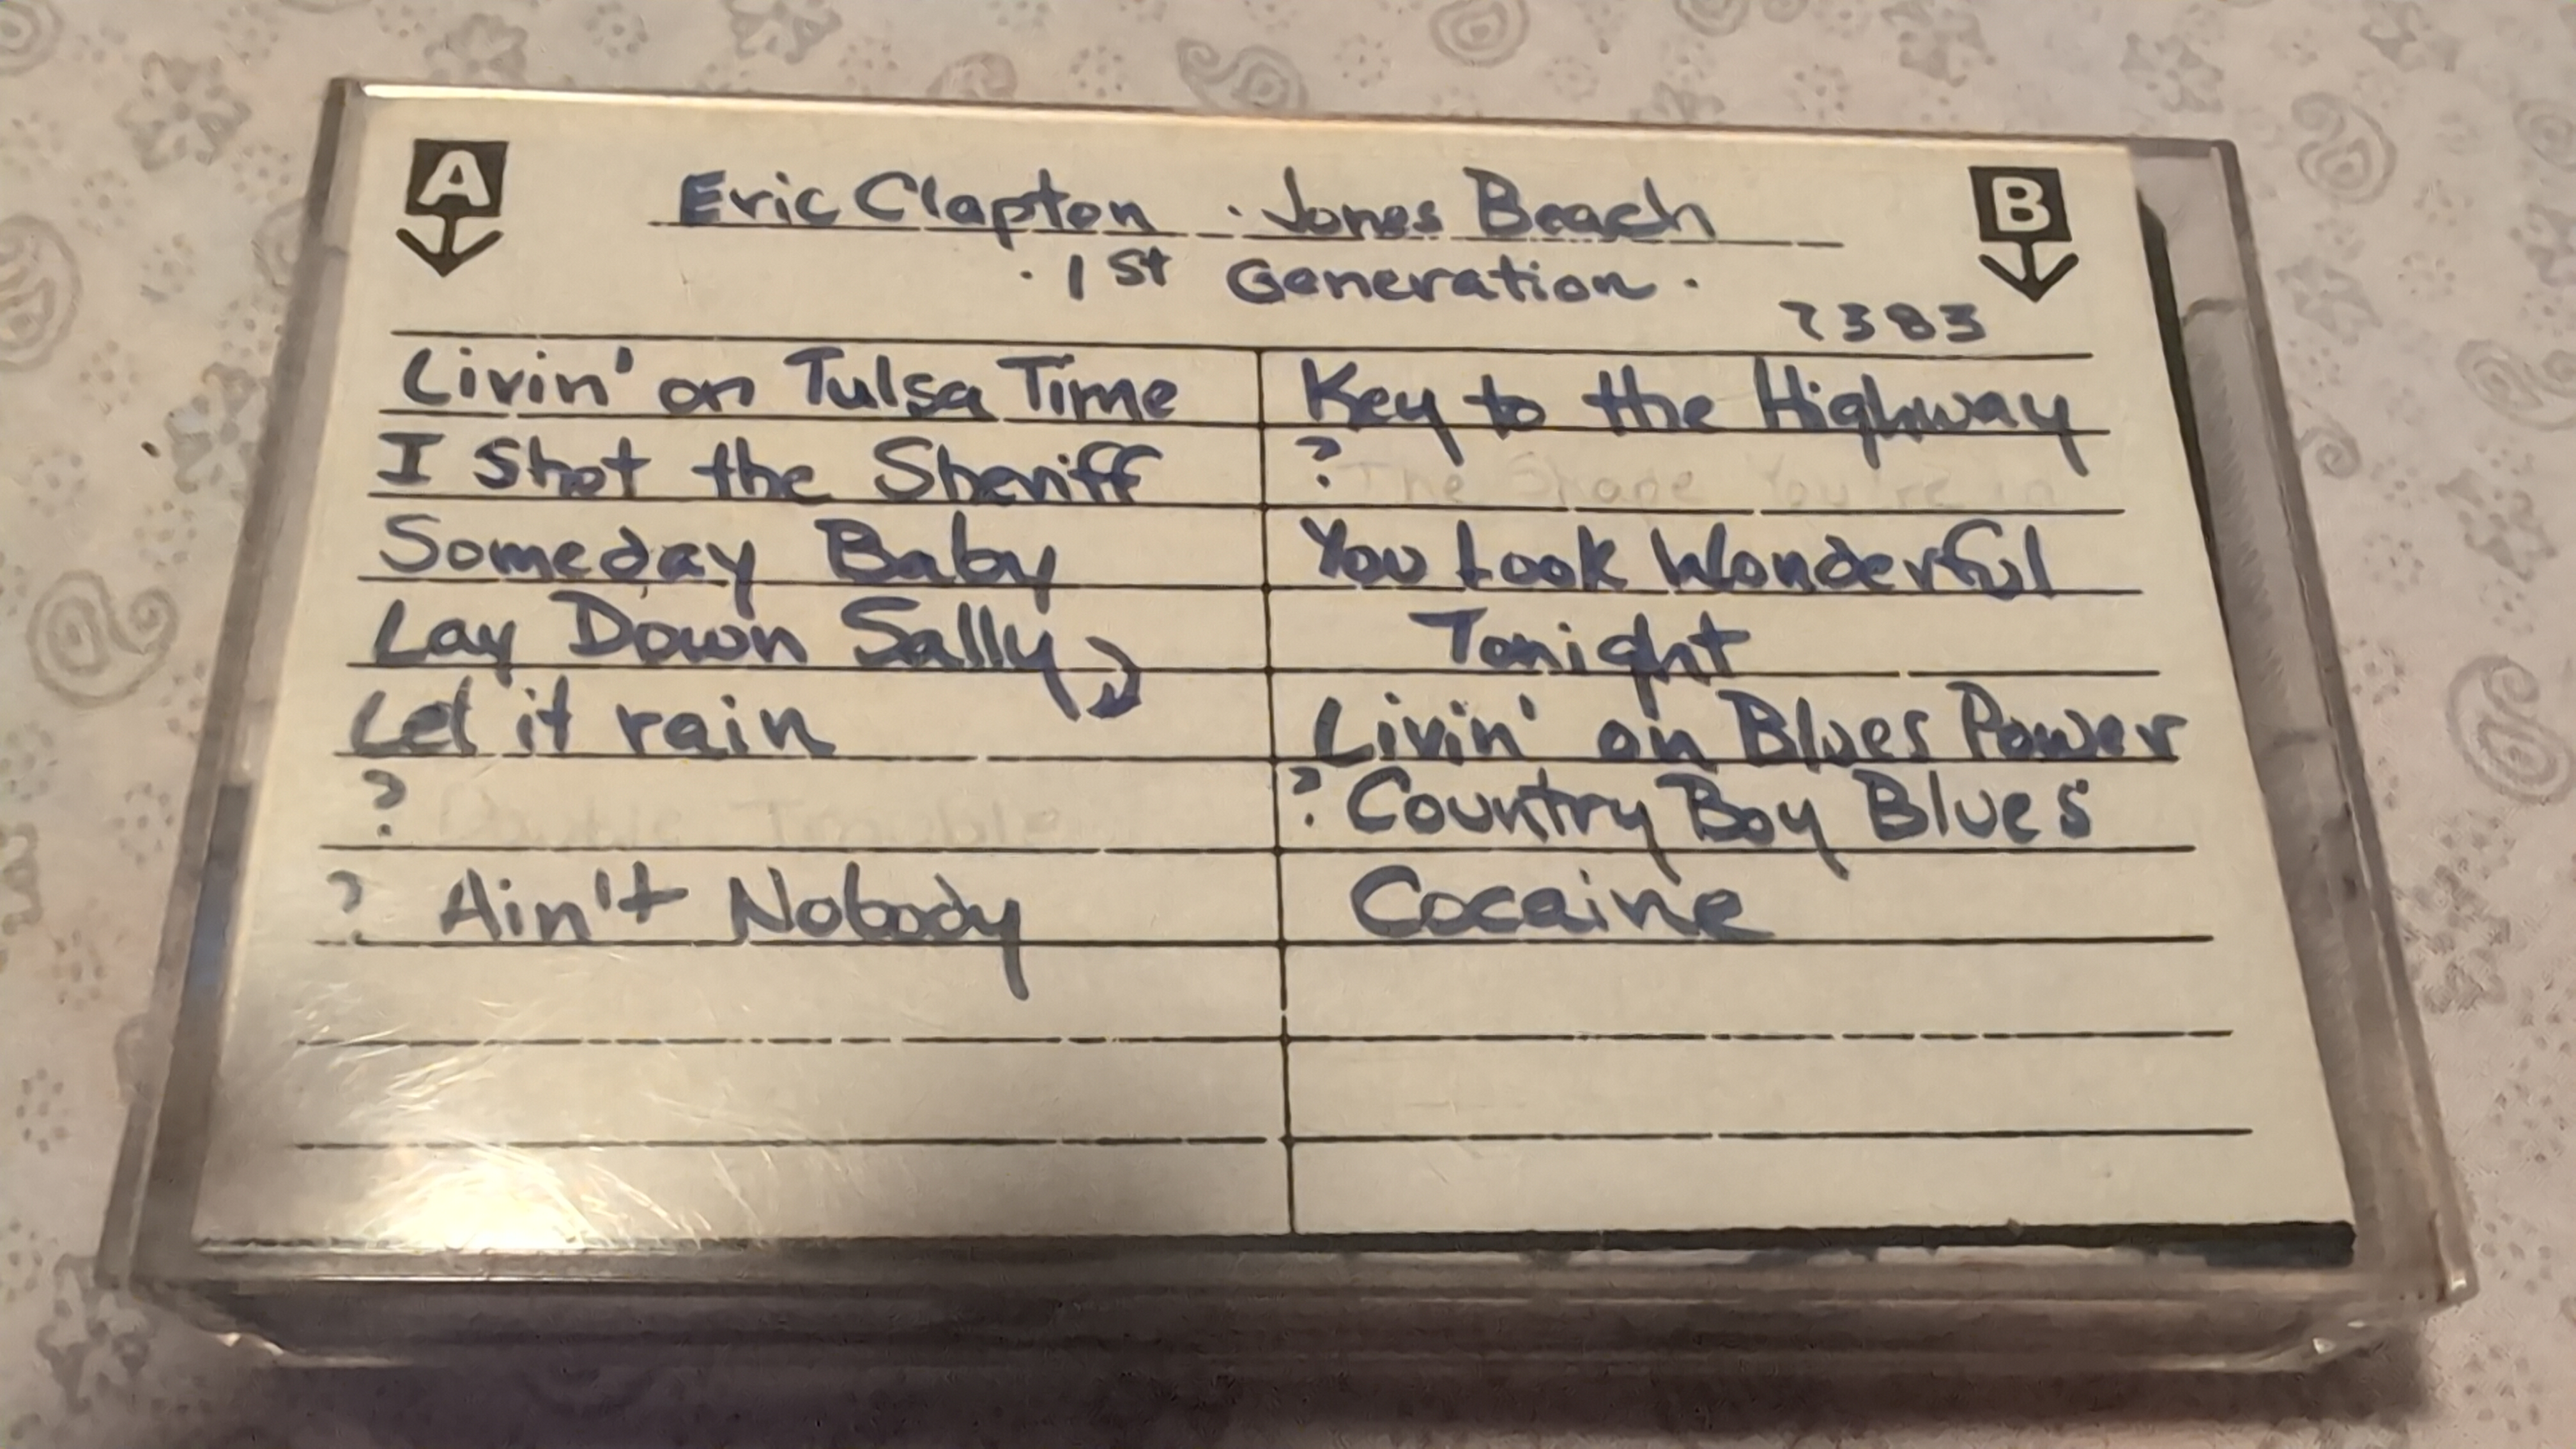 A
B
Eric Clapton · Jones Beach
· 1st Generation ·
7383
Livin' on Tulsa Time
I Shot the Sheriff
Someday Baby
Lay Down Sally
Let it rain
? Double Trouble
? Ain't Nobody
Key to the Highway
? The Shape You're in
You Look Wonderful
Tonight
Livin' on Blues Power
? Country Boy Blues
Cocaine